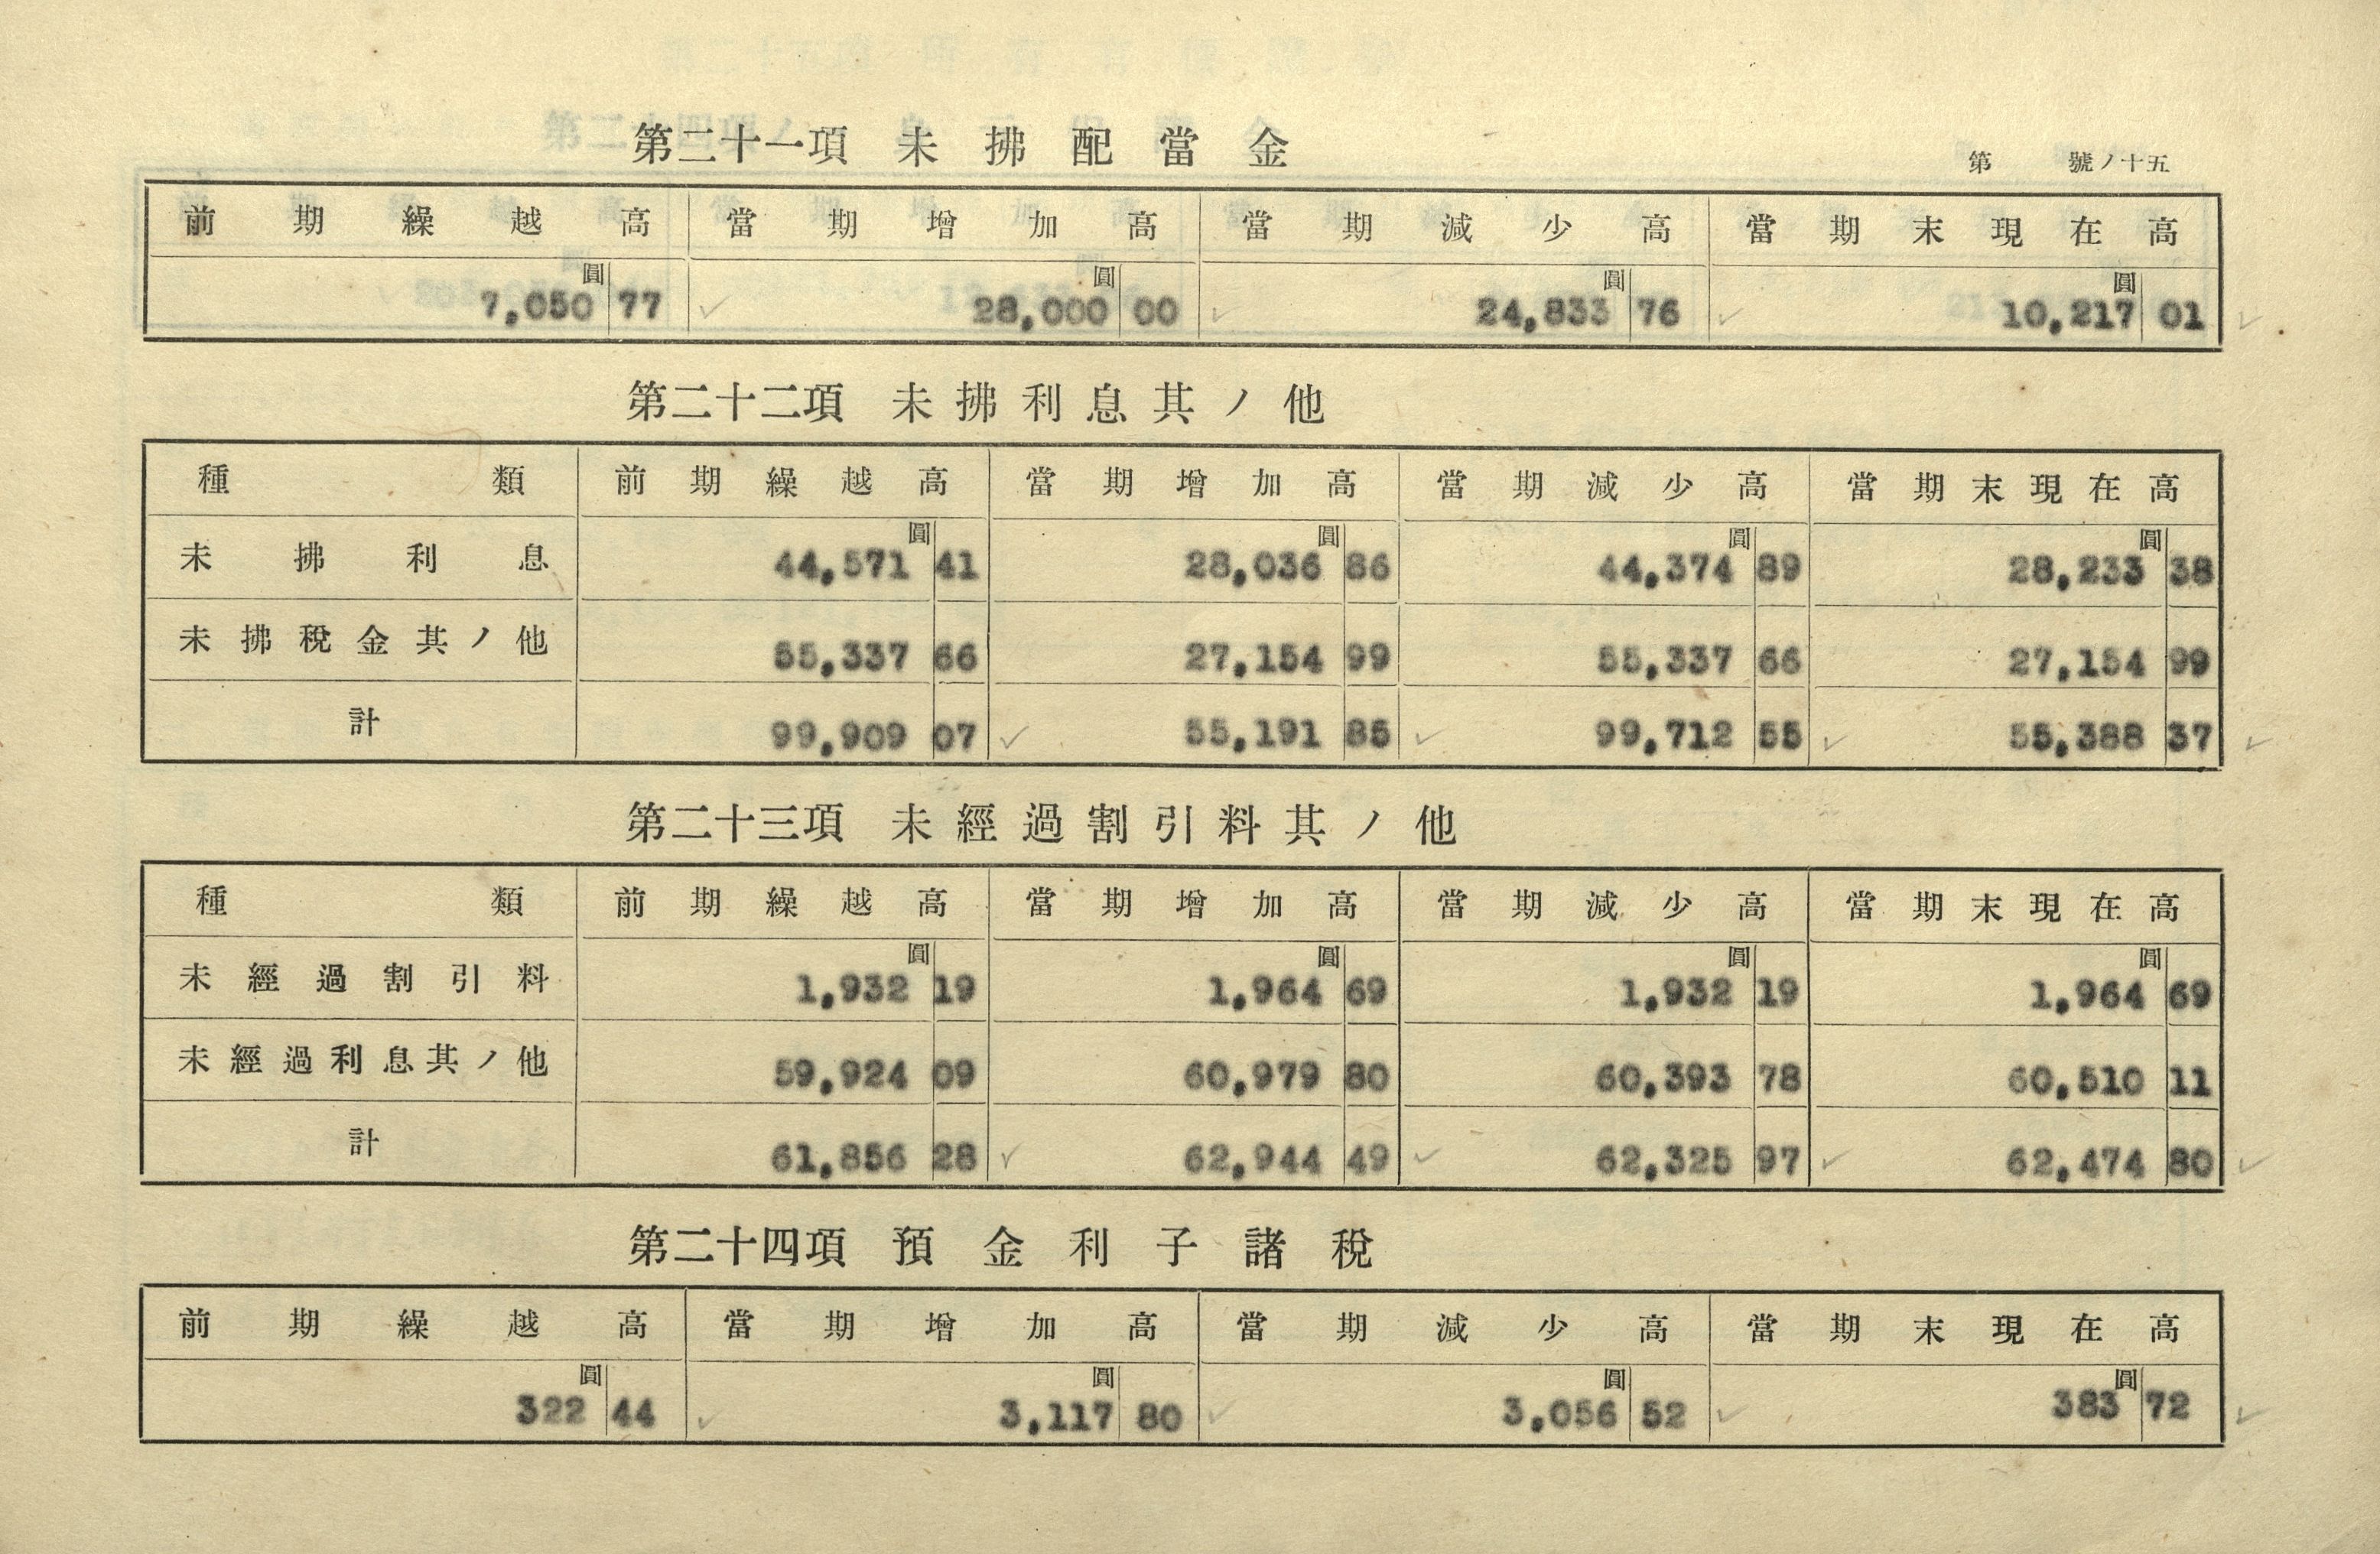 第二十一項 未拂配當金
第 號ノ十五
前期繰越高 當期增加高 當期減少高 當期末現在高
圓 圓 圓 圓
7,050 77 28,000 00 24,833 76 10,217 01
第二十二項 未拂利息其ノ他
種類 前期繰越高 當期增加高 當期減少高 當期末現在高
圓 圓 圓 圓
未拂利息 44,571 41 28,036 86 44,374 89 28,233 38
未拂稅金其ノ他 55,337 66 27,154 99 55,337 66 27,154 99
計 99,909 07 55,191 85 99,712 55 55,388 37
第二十三項 未經過割引料其ノ他
種類 前期繰越高 當期增加高 當期減少高 當期末現在高
圓 圓 圓 圓
未經過割引料 1,932 19 1,964 69 1,932 19 1,964 69
未經過利息其ノ他 59,924 09 60,979 80 60,393 78 60,510 11
計 61,856 28 62,944 49 62,325 97 62,474 80
第二十四項 預金利子諸稅
前期繰越高 當期增加高 當期減少高 當期末現在高
圓 圓 圓 圓
322 44 3,117 80 3,056 52 383 72